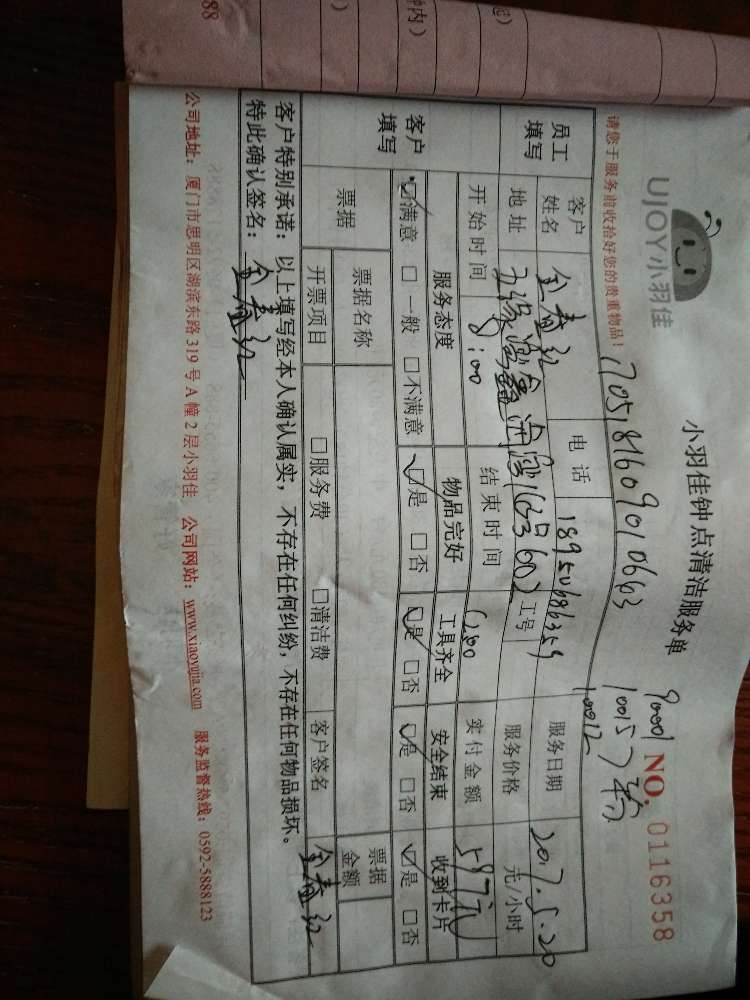 起)
钟内)
)
88
UJOY小羽佳
小羽佳钟点清洁服务单
NO. 0116358
90001
10015
10012
请您于服务前收拾好您的贵重物品!
1705181609010603
员工填写
客户姓名
电话
18950686359
服务日期
2017.5.20
地址
602
工号
服务价格
元/小时
开始时间
8:00
结束时间
实付金额
597元
客户填写
服务态度
物品完好
工具齐全
安全结束
收到卡片
☑满意 □一般 □不满意
☑是 □否
☑是 □否
☑是 □否
☑是 □否
票据
票据名称
票据金额
开票项目
□服务费 □清洁费
客户签名
客户特别承诺:以上填写经本人确认属实,不存在任何纠纷,不存在任何物品损坏。
特此确认签名:
公司地址:厦门市思明区湖滨东路319号A幢2层小羽佳 公司网站:www.xiaoyujia.com 服务监督热线:0592-5888123